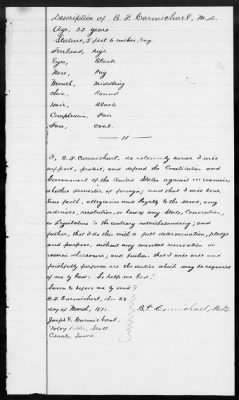 Description of B. F. Carmichael, M.D.
Age, 22 years
Stature, 5 feet 10 inches, Eng
Forehead, High
Eyes, Black
Nose, Pug
Mouth, Middling
Chin, Round
Hair, Black
Complexion, Fair
Face, Oval.
I, B. F. Carmichael, do solemnly swear I will
support, protect, and defend the Constitution and
Government of the United States against all enemies,
whether domestic or foreign; and that I will bear
true faith, allegiance and loyalty to the same, any
ordinance, resolution, or law of any State, Convention,
or Legislature to the contrary notwithstanding; and
further, that I do this with a full determination, pledge
and purpose, without any mental reservation or
evasion whatsoever; and further, that I will well and
faithfully perform all the duties which may be required
of me by law: So help me God!
Sworn to before me by said
B. F. Carmichael, this 28
day of March, 187
B. F. Carmichael, M.D.
Joseph G. Carmichael,
Notary Public, Scott
County, Iowa.